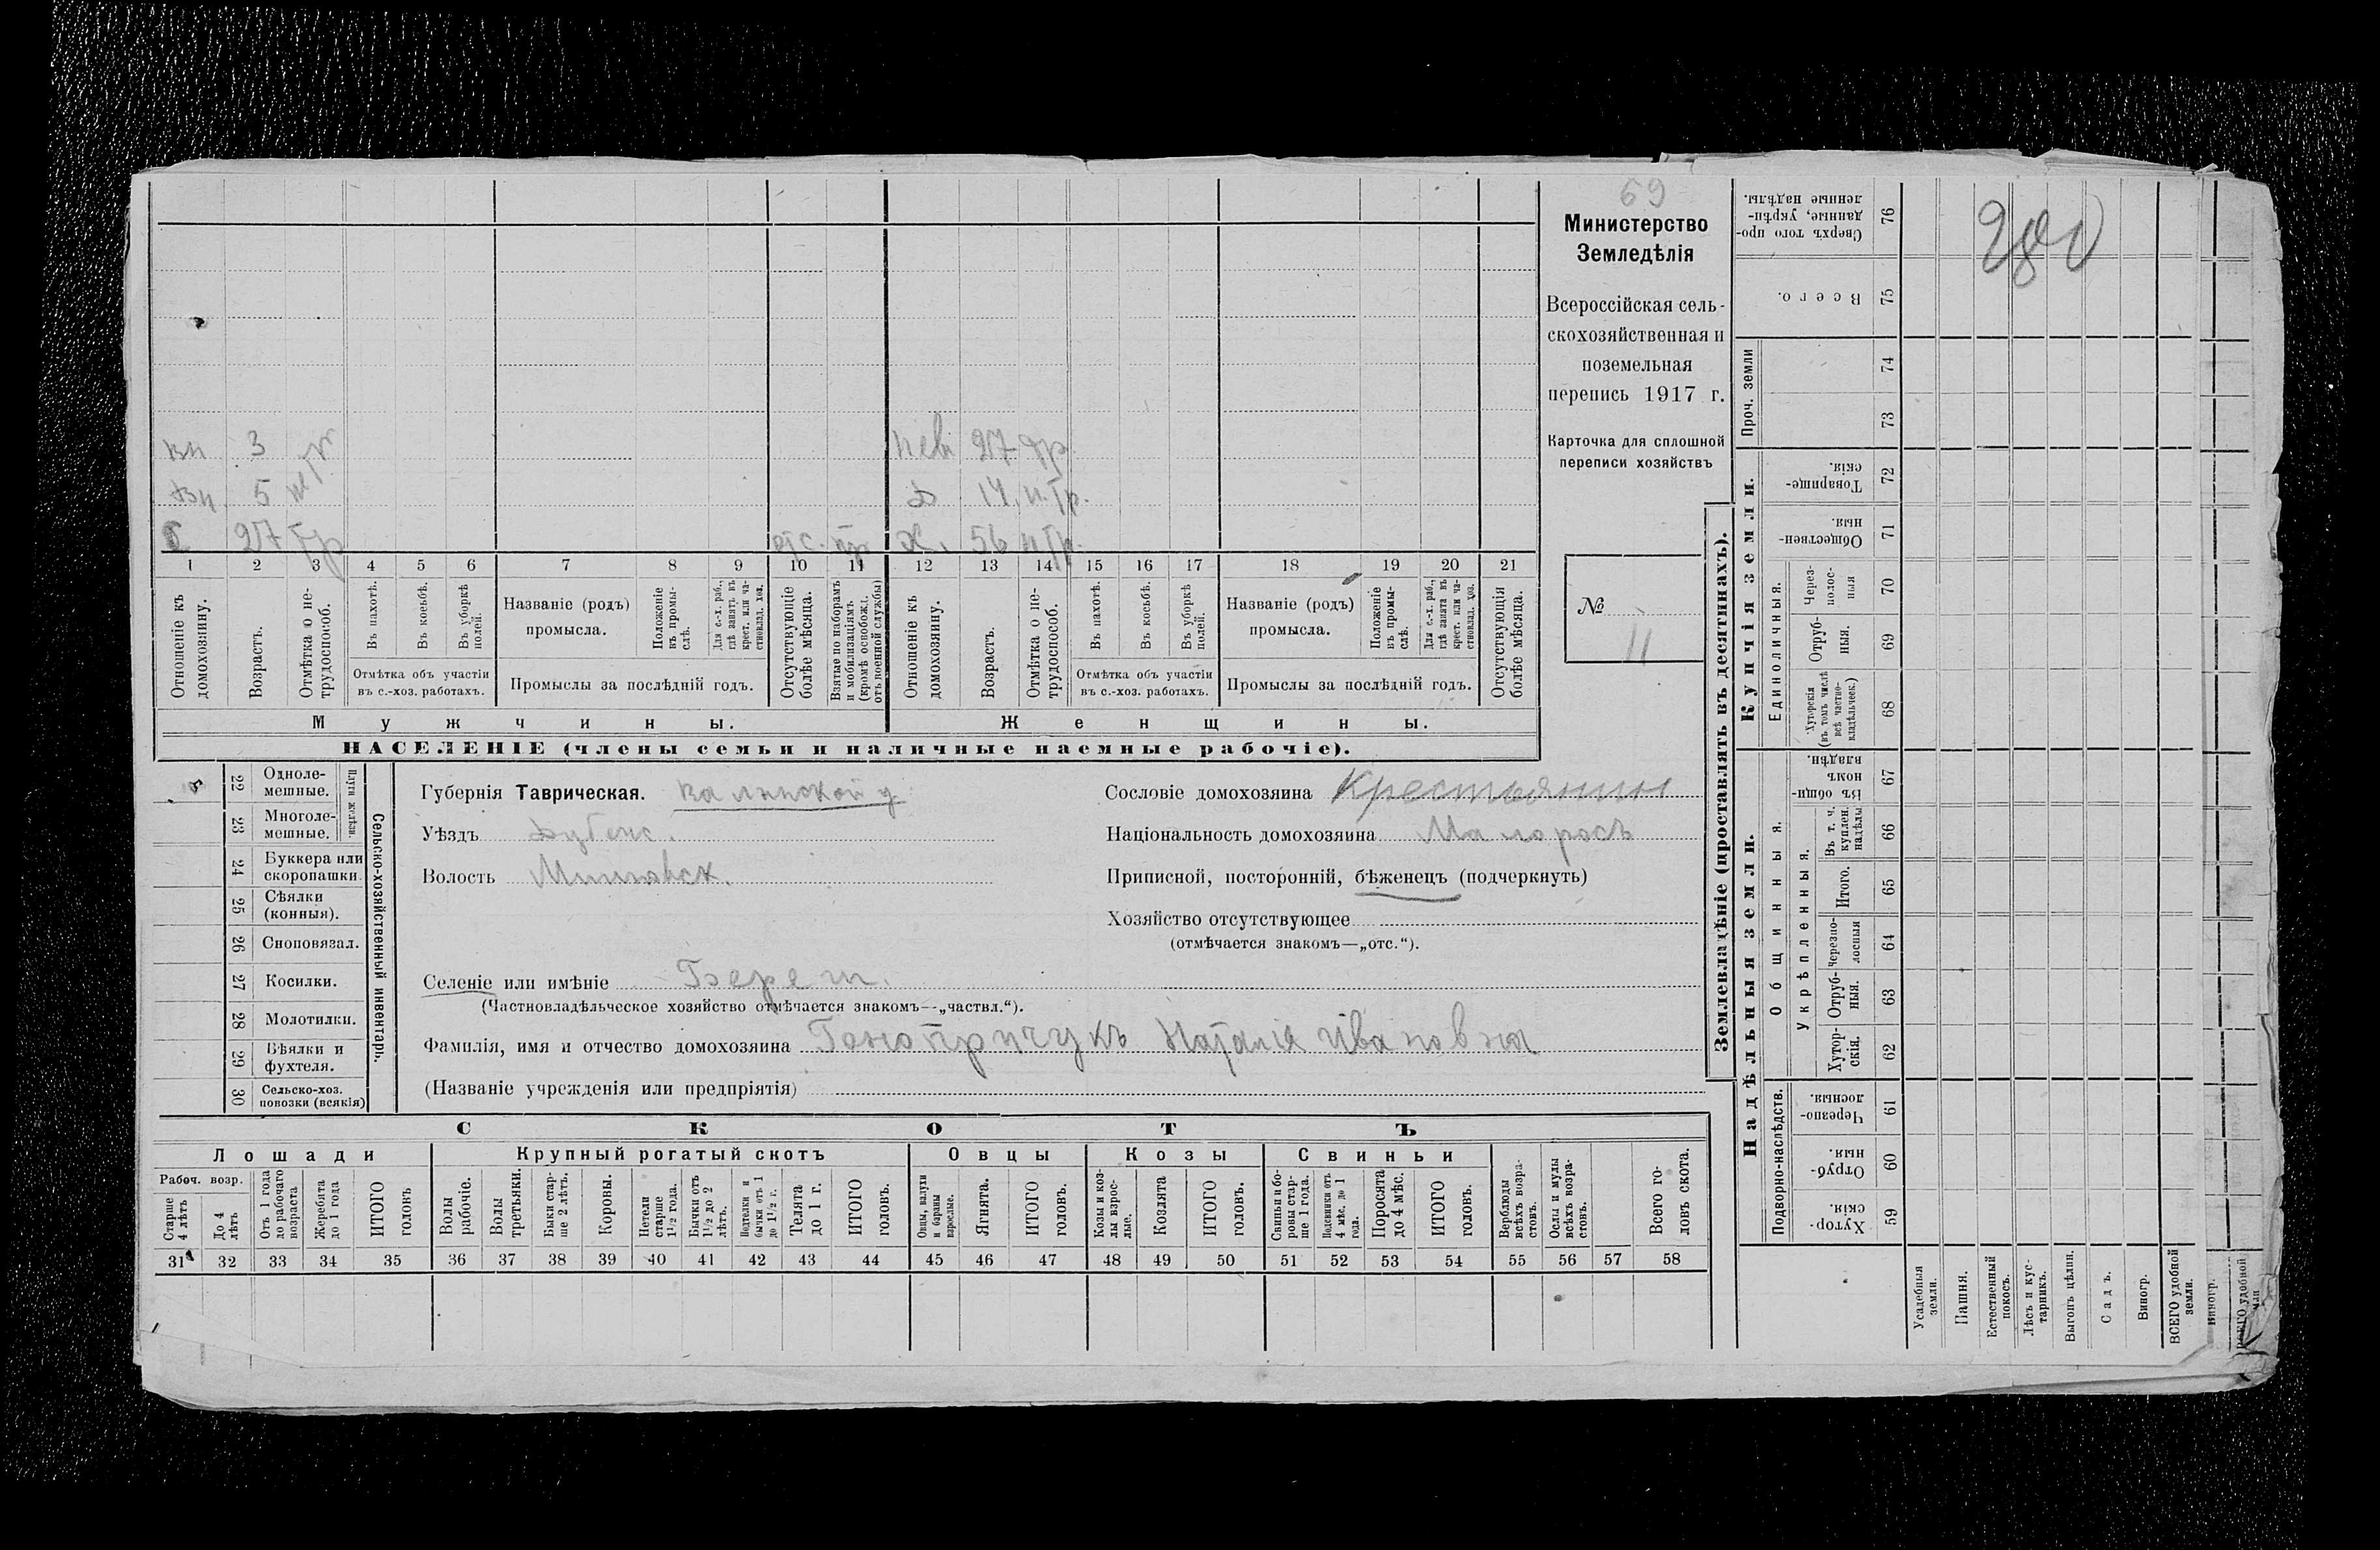 69
Министерство
Земледѣлія
Всероссійская сель-
скохозяйственная и
поземельная
перепись 1917 г.
Карточка для сплошной
переписи хозяйствъ
№ 11
280
вн 3
вн 5
С 27 гр отс.
нев 27 гр
Д 14 н. гр.
Х. 56 н гр.
1 2 3 4 5 6 7 8 9 10 11 12 13 14 15 16 17 18 19 20 21
Отношеніе къ домохозяину.
Возрастъ.
Отмѣтка о не-трудоспособ.
Въ пахотѣ.
Въ косьбѣ.
Въ уборкѣ полей.
Отмѣтка объ участіи
въ с.-хоз. работахъ.
Названіе (родъ)
промысла.
Положеніе въ промы-слѣ.
Для с.-х. раб., гдѣ занятъ въ крест. или ча-стновлад. хоз.
Промыслы за послѣдній годъ.
Отсутствующіе болѣе мѣсяца.
Взятые по наборамъ и мобилизаціямъ (кромѣ освобожд. отъ военной службы)
Отношеніе къ домохозяину.
Возрастъ.
Отмѣтка о не-трудоспособ.
Въ пахотѣ.
Въ косьбѣ.
Въ уборкѣ полей.
Отмѣтка объ участіи
въ с.-хоз. работахъ.
Названіе (родъ)
промысла.
Положеніе въ промы-слѣ.
Для с.-х. раб., гдѣ занята въ крест. или ча-стновлад. хоз.
Промыслы за послѣдній годъ.
Отсутствующія болѣе мѣсяца.
Мужчины.
Женщины.
НАСЕЛЕНІЕ (члены семьи и наличные наемные рабочіе).
22 Одноле-мешные.
23 Многоле-мешные.
Плуги желѣзн.
24 Буккера или скоропашки.
25 Сѣялки (конныя).
26 Сноповязал.
27 Косилки.
28 Молотилки.
29 Вѣялки и фухтеля.
30 Сельско-хоз. повозки (всякія)
Сельско-хозяйственный инвентарь.
Губернія Таврическая.
Уѣздъ Дубенс.
Волость
Сословіе домохозяина Крестьянин
Національность домохозяина Малоросъ
Приписной, посторонній, бѣженецъ (подчеркнуть)
Хозяйство отсутствующее
(отмѣчается знакомъ—„отс.“).
Селеніе или имѣніе
(Частновладѣльческое хозяйство отмѣчается знакомъ—„частвл.“).
Фамилія, имя и отчество домохозяина Гонопричукъ Наталія Ивановна
(Названіе учрежденія или предпріятія)
СКОТЪ
Лошади
Крупный рогатый скотъ
Овцы
Козы
Свиньи
Рабоч. возр.
Старше 4 лѣтъ
До 4 лѣтъ
Отъ 1 года до рабочаго возраста
Жеребята до 1 года
ИТОГО головъ
Волы рабочіе.
Волы третьяки.
Быки стар-ше 2 лѣтъ.
Коровы.
Нетели старше 1½ года.
Бычки отъ 1½ до 2 лѣтъ.
Подтелки и бычки отъ 1 до 1½ г.
Телята до 1 г.
ИТОГО головъ.
Овцы, валухи и бараны взрослые.
Ягнята.
ИТОГО головъ.
Козы и коз-лы взрос-лые.
Козлята
ИТОГО головъ.
Свиньи и бо-ровы стар-ше 1 года.
Подсвинки отъ 4 мѣс. до 1 года.
Поросята до 4 мѣс.
ИТОГО головъ.
Верблюды всѣхъ возра-стовъ.
Ослы и мулы всѣхъ возра-стовъ.
Всего го-ловъ скота.
31 32 33 34 35 36 37 38 39 40 41 42 43 44 45 46 47 48 49 50 51 52 53 54 55 56 57 58
Землевладѣніе (проставлять въ десятинахъ).
Надѣльныя земли.
Подворно-наслѣдств.
Хутор-скія. 59
Отруб-ныя. 60
Черезпо-лосныя. 61
Общинныя.
Укрѣпленныя.
Хутор-скія. 62
Отруб-ныя. 63
Черезпо-лосныя 64
Итого. 65
Въ т. ч. куплен. надѣлы 66
Въ общи-номъ владѣн. 67
Купчія земли.
Единоличныя.
Хуторскія (въ томъ числѣ всѣ частно-владѣльческ.) 68
Отруб-ныя. 69
Через-полос-ныя 70
Обществен-ныя. 71
Товарище-скія. 72
Проч. земли
73
74
Всего. 75
Сверхъ того про-данные, укрѣп-ленные надѣлы. 76
Усадебныя земли.
Пашня.
Естественный покосъ.
Лѣсъ и кус-тарникъ.
Выгонъ цѣлин.
Садъ.
Виногр.
ВСЕГО удобной земли.
Виногр.
ВСЕГО удобной